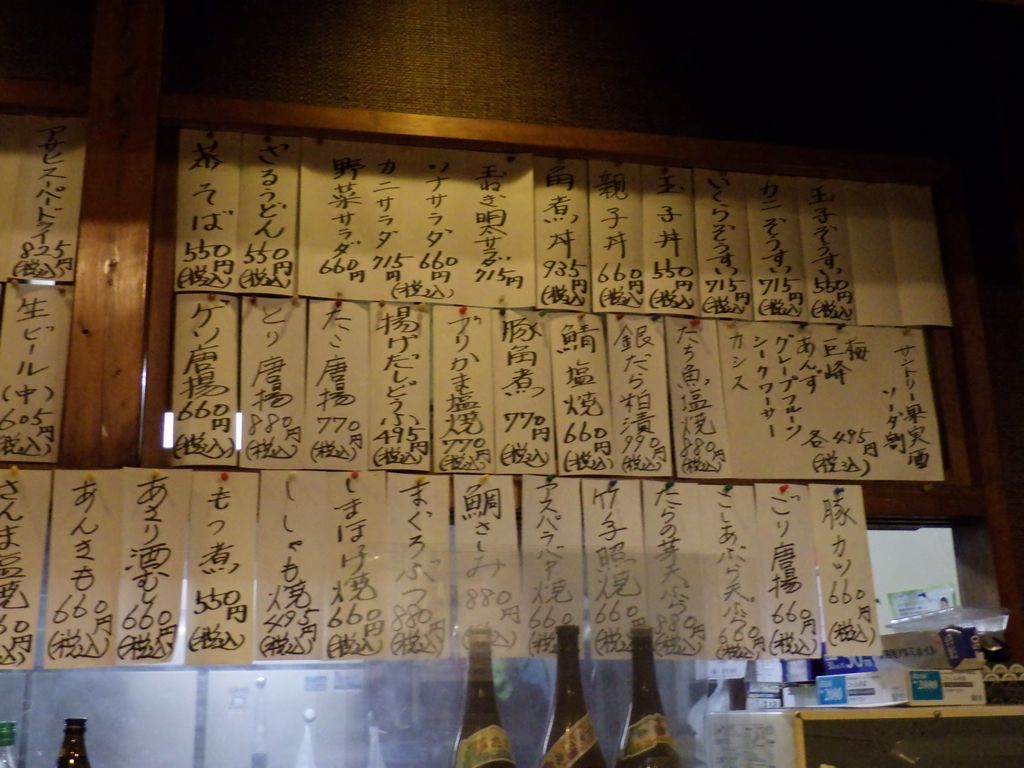 アサヒスーパードライ 825円(税込)
茶そば 550円(税込)
ざるうどん 550円(税込)
野菜サラダ 660円
カニサラダ 715円
ツナサラダ 660円
(税込)
玉ねぎ明太サラダ 715円
角煮丼 935円(税込)
親子丼 660円(税込)
玉子丼 550円(税込)
いくらぞうすい 715円(税込)
カニぞうすい 715円(税込)
玉子ぞうすい 550円(税込)
生ビール(中) 605円(税込)
ゲソ唐揚 660円(税込)
とり唐揚 880円(税込)
たこ唐揚 770円(税込)
揚げだしどうふ 495円(税込)
ブリかま塩焼 770円(税込)
豚角煮 770円(税込)
鯖塩焼 660円(税込)
銀だら粕漬 990円(税込)
たち魚塩焼 880円(税込)
サントリー果実酒
ソーダ割
梅
巨峰
あんず
グレープフルーツ
シークワーサー
カシス
各495円(税込)
さんま塩焼 660円(税込)
あんきも 660円(税込)
あさり酒むし 660円(税込)
もつ煮 550円(税込)
ししゃも焼 495円(税込)
しまほっけ焼 660円(税込)
まぐろぶつ 880円(税込)
鯛さしみ 880円(税込)
アスパラバター焼 660円(税込)
竹子照焼 660円(税込)
たらの芽天ぷら 880円(税込)
こしあぶら天ぷら 660円(税込)
ごり唐揚 660円(税込)
豚カツ 660円(税込)